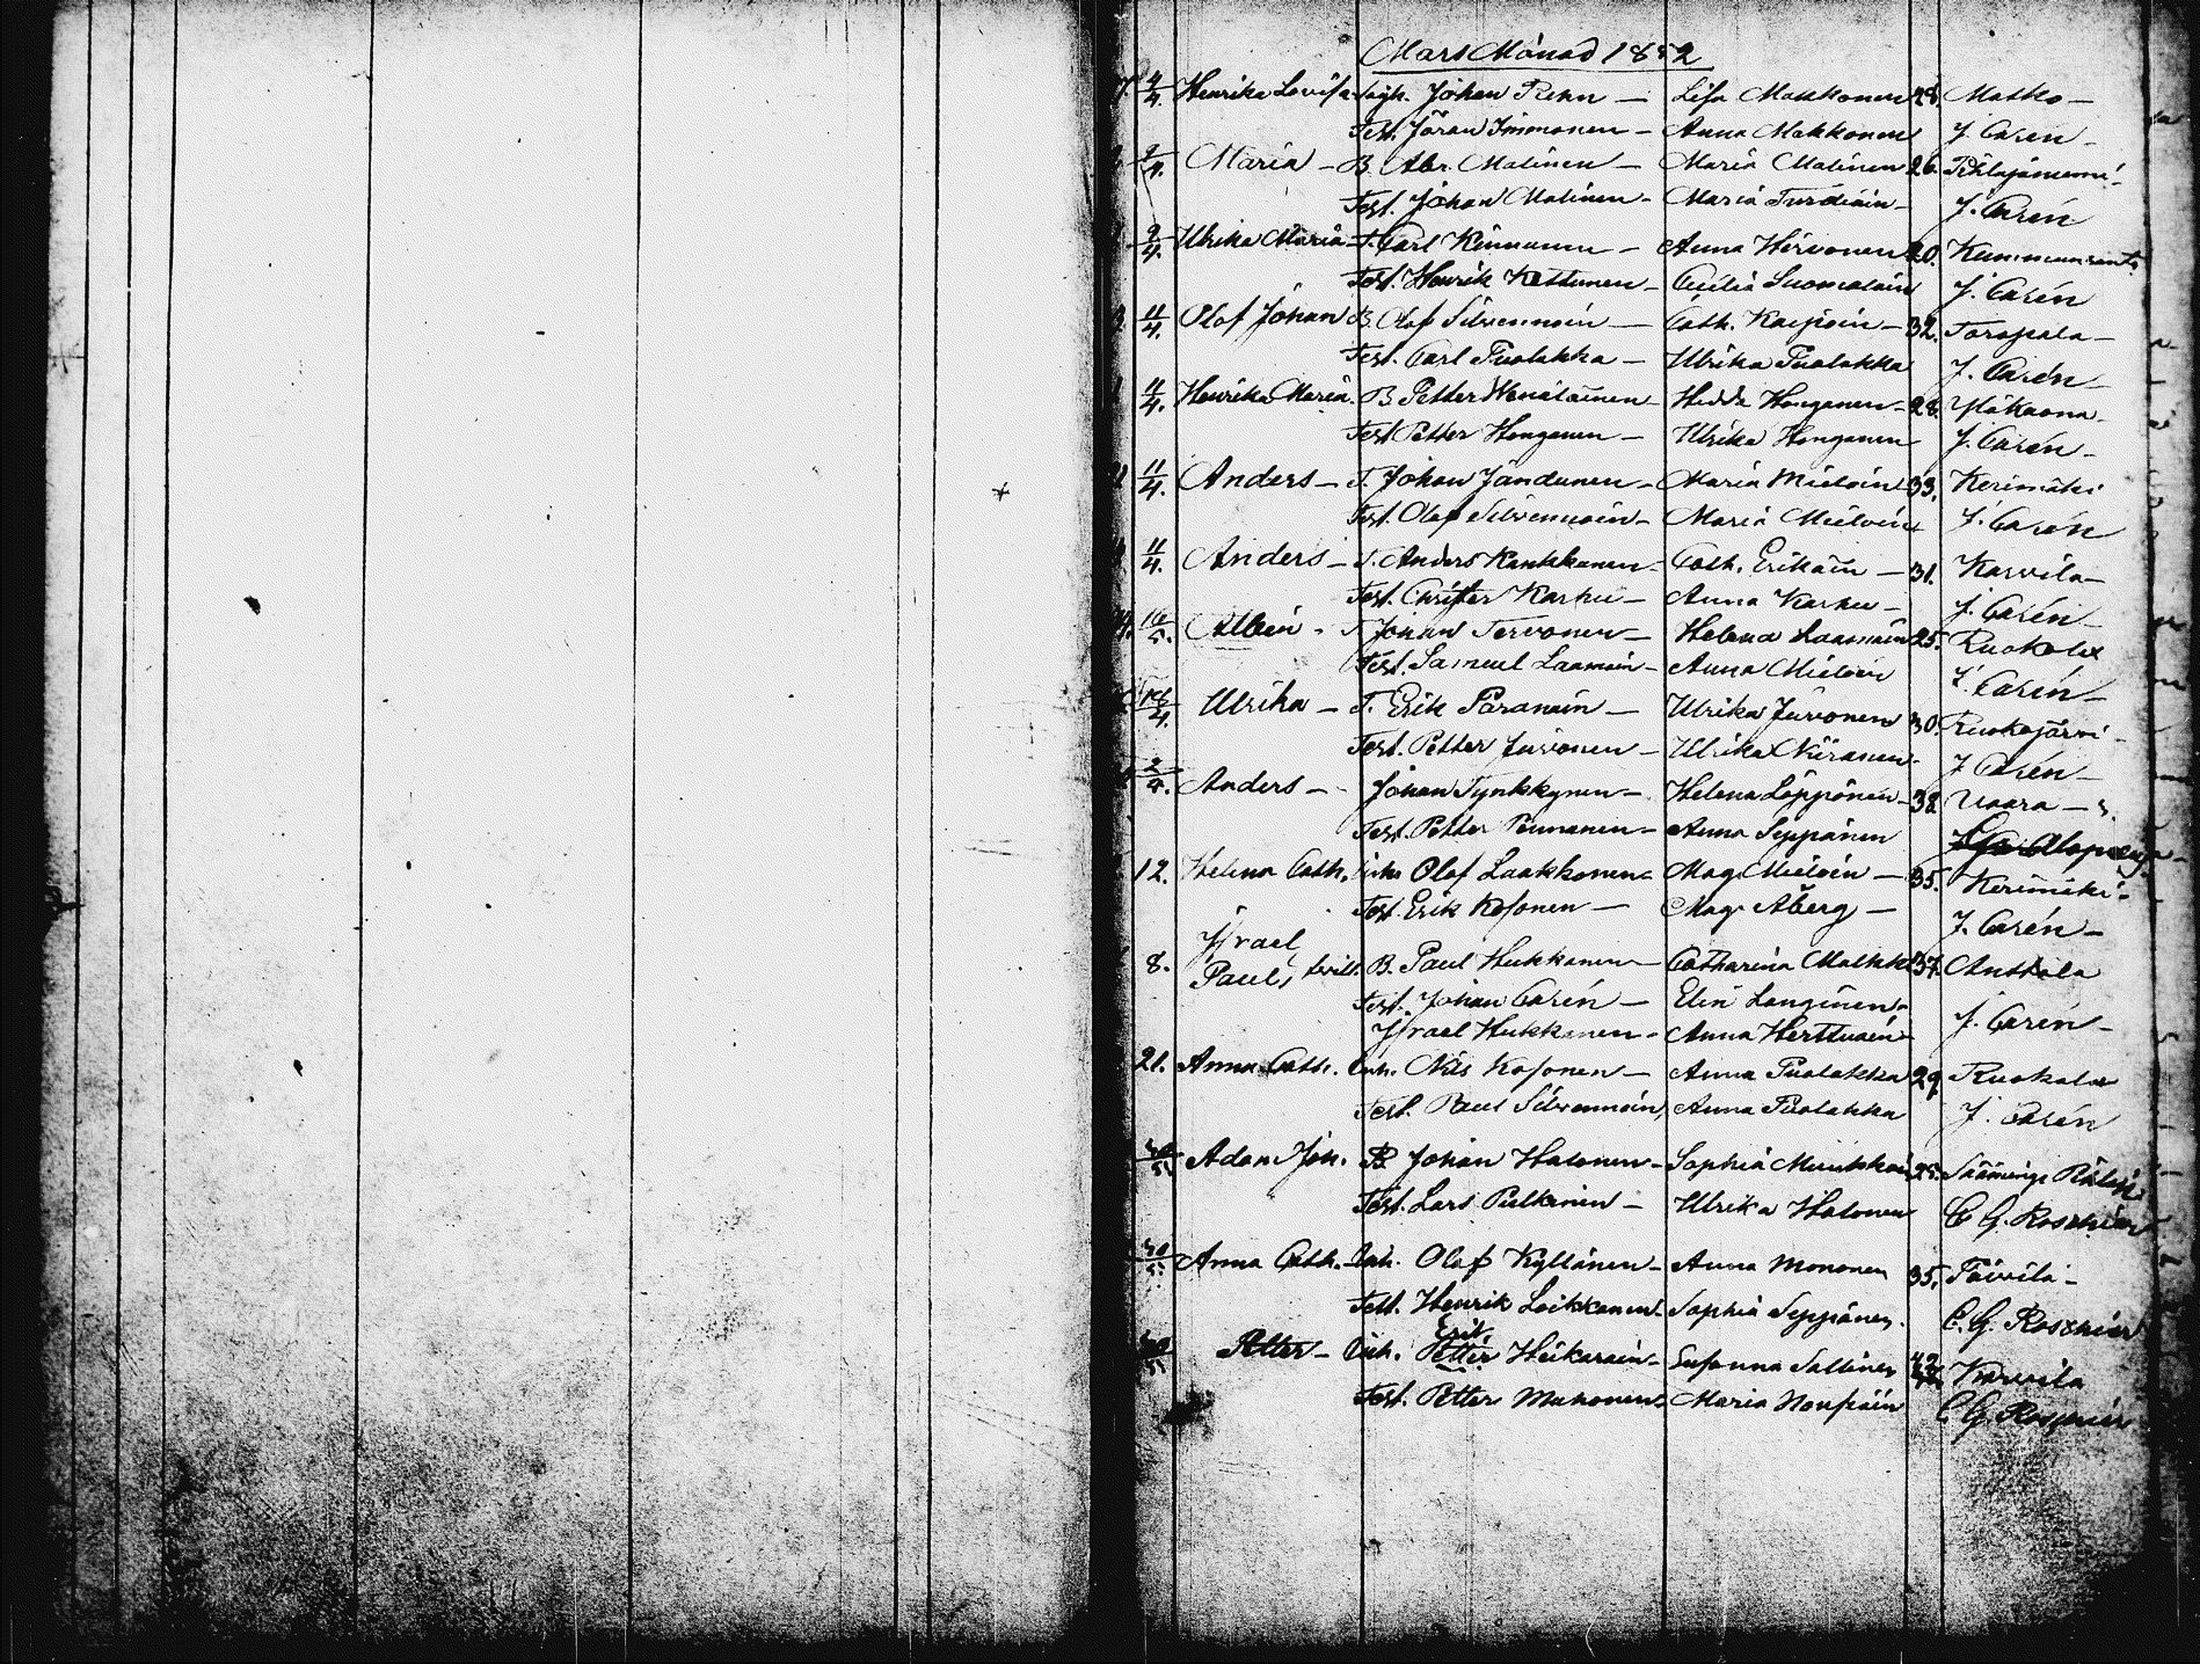 Mars Månad 1852
4/4. Henrika Lovisa Johan Renn — Lisa Makkonen 48. Matko —
Test. Jöran Immonen — Anna Makkonen J. Carén —
9/4. Maria — B. Abr. Malinen — Maria Malinen 26. Pihlajaniemi —
Test. Johan Malinen — Maria Turdiain — J. Carén
9/4. Ulrika Maria — T. Carl Kinnunen — Anna Hirvonen 20.
Test. Henrik Kettunen — Cecilia Suomalain J. Carén
11/4. Olof Johan B. Olof Silvennoin — Cath. Kaipain — 32. Toropala —
Test. Carl Puolakka — Ulrika Puolakka J. Carén —
11/4. Henrika Maria. B Petter Wenäläinen — Hedda Honganen — 28.
Test Petter Honganen — Ulrika Honganen J. Carén —
11/4. Anders — T. Johan Jandunen — Maria Mieloin 33. Kerimäki
Test. Olof Silvennoin — Maria Mieloin J. Carén
11/4. Anders — T. Anders Kankkanen — Cath. Erikäin — 31. Karvila —
Test. Christer Karhu — Anna Karhu — J. Carén —
16/5. Albin — T Johan Tervonen — Helena Laamain 25. Ruokola
Test. Samuel Laamain — Anna Mieloin J. Carén —
4. Ulrika — T. Erik Paranain — Ulrika Jurvonen 30. Ruokojärvi —
Test. Petter Jurvonen — Ulrika Niiranen — J Carén —
2/4. Anders — Johan Tynkkynen — Helena Löppönen — 38. Vaara —
Test. Petter Pennanen — Anna Seppänen
12. Helena Cath. Olof Laakkonen — Mag. Mieloin — 35. Kerimäki —
Test. Erik Kosonen — Mag. Åberg — J. Carén —
Israel
8. Paul, tvill. B. Paul Hukkanen — Catharina Malkk 37. Anttola
Test. Johan Carén — Elin Langinen — J. Carén —
Israel Hukkanen — Anna Herttuain
21. Anna Cath. Inh. Nils Kosonen — Anna Puolakka 29 Ruokola
Test. Paul Silvennoin, Anna Puolakka J. Carén
30/5. Adam Joh. B Johan Halonen — Sophia 25. Sääminge
Test. Lars Pulkkinen — Ulrika Halonen C G. Roschier
30/5. Anna Cath. — Inh. Olof Kyllönen — Anna Mononen 35. Päivilä —
Test. Henrik Loikkanen — Sophia Seppänen. C. G. Roschier
Erik
30/5 Petter — Inh. Petter Heikarain — Susanna Sallinen 42 Karvila
Test. Petter Muhonen — Maria Noupiain C G. Roschier